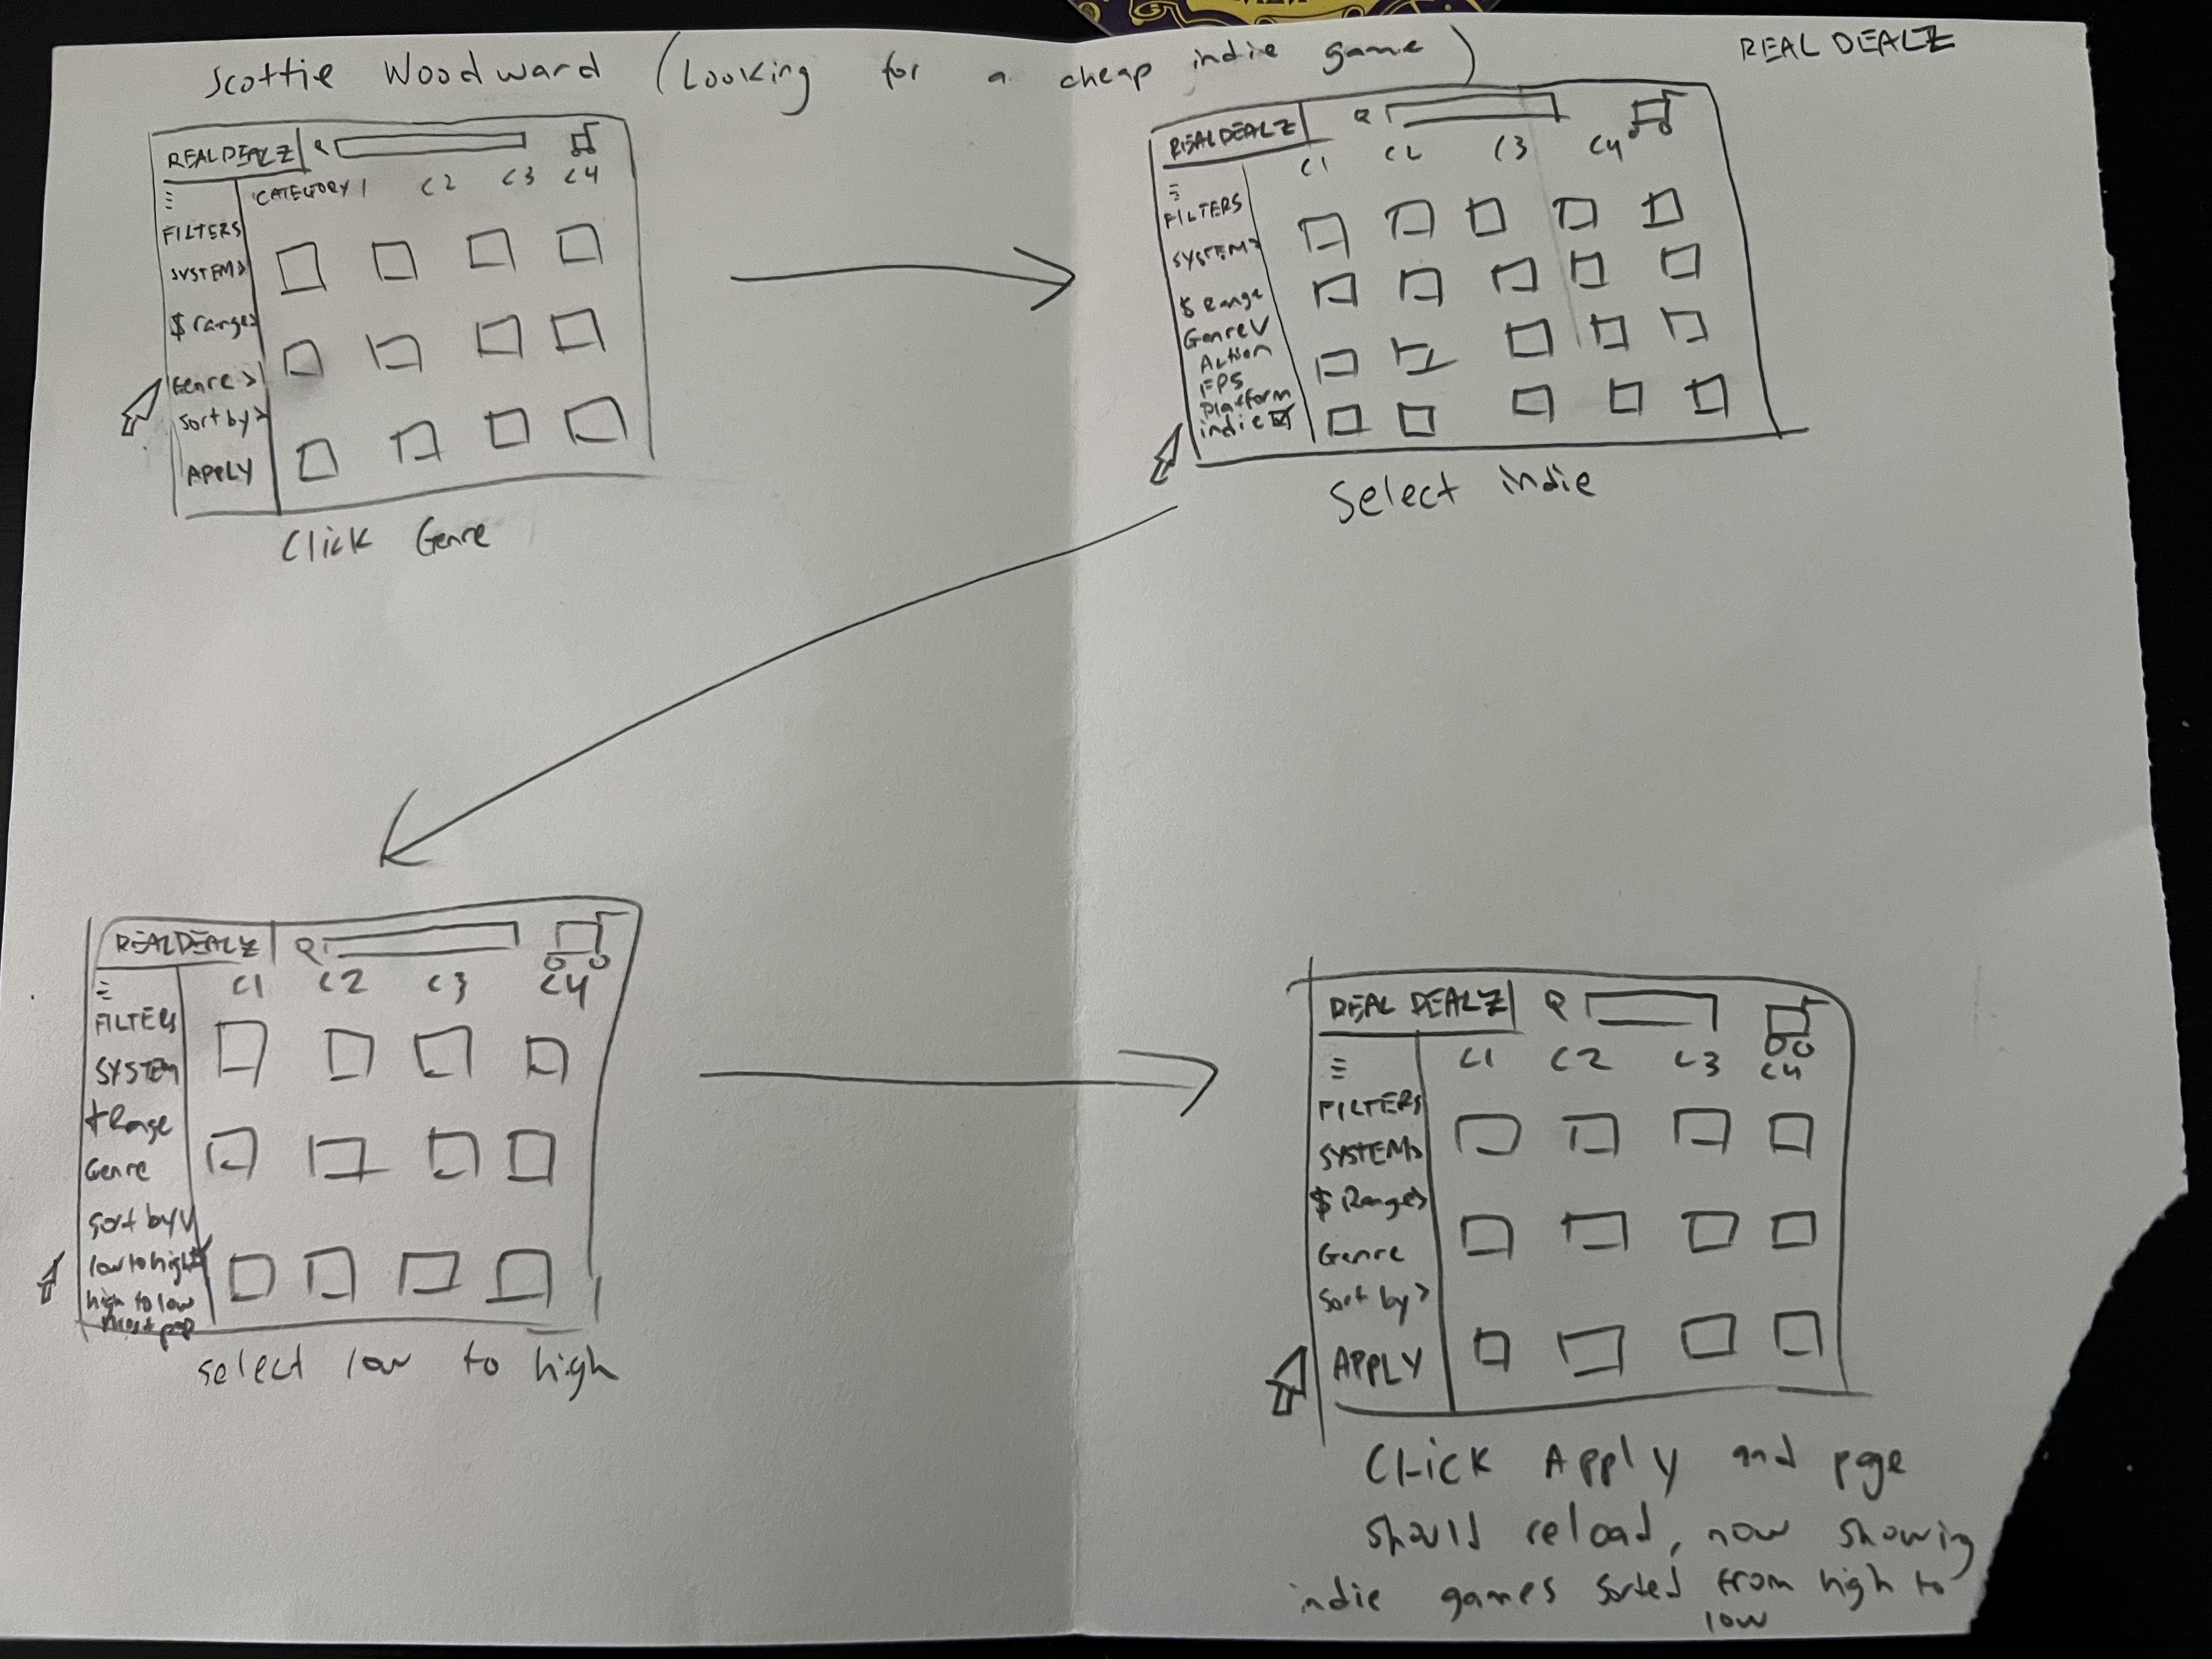 Scottie Woodward (Looking for a cheap indie game)
REAL DEALZ
REALDEALZ
CATEGORY 1 C2 C3 C4
FILTERS
SYSTEM>
$ range>
Genre >
Sort by>
APPLY
Click Genre
REALDEALZ
C1 C2 C3 C4
FILTERS
SYSTEM>
$ Range
Genre V
Action
FPS
Platform
indie
Select indie
REALDEALZ
C1 C2 C3 C4
FILTERS
SYSTEM
Range
Genre
Sort by V
low to high
high to low
most pop
select low to high
REAL DEALZ
C1 C2 C3 C4
FILTERS
SYSTEM>
$ Range>
Genre
Sort by >
APPLY
Click Apply and page
should reload, now showing
indie games sorted from high to
low